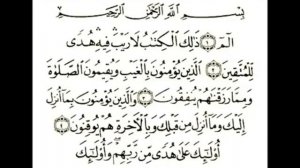 بِسْمِ اللَّهِ الرَّحْمَٰنِ الرَّحِيمِ
الٓمٓ ۝١ ذَٰلِكَ الْكِتَٰبُ لَا رَيْبَ فِيهِ هُدًى
لِلْمُتَّقِينَ ۝٢ الَّذِينَ يُؤْمِنُونَ بِالْغَيْبِ وَيُقِيمُونَ الصَّلَوٰةَ
وَمِمَّا رَزَقْنَٰهُمْ يُنْفِقُونَ ۝٣ وَالَّذِينَ يُؤْمِنُونَ بِمَا أُنْزِلَ
إِلَيْكَ وَمَا أُنْزِلَ مِنْ قَبْلِكَ وَبِالْآخِرَةِ هُمْ يُوقِنُونَ ۝٤
أُولَٰئِكَ عَلَىٰ هُدًى مِنْ رَبِّهِمْ وَأُولَٰئِكَ